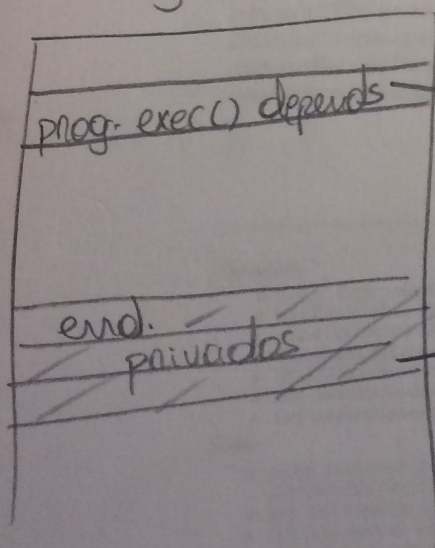 prog. exec() depends
end.
privados